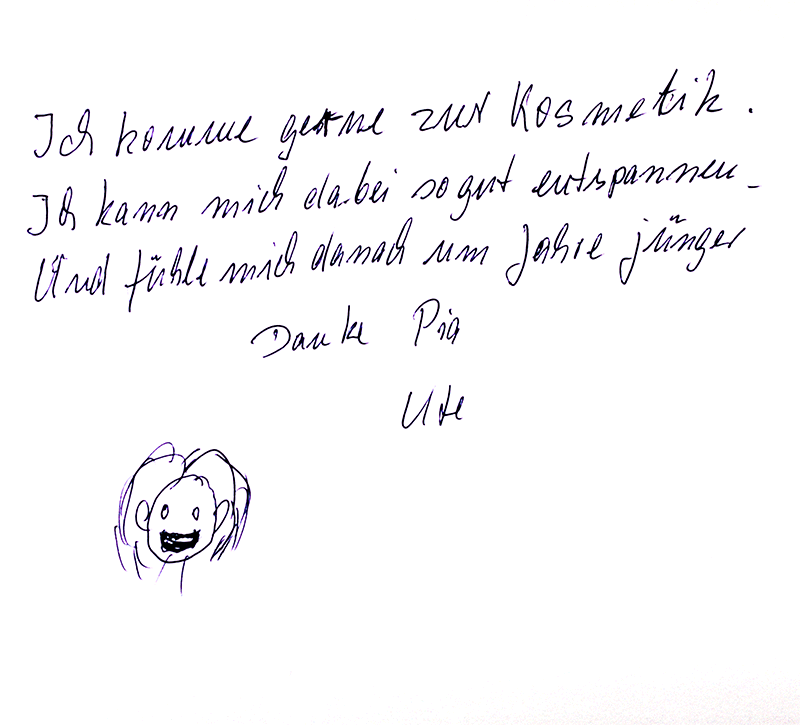 Ich komme gerne zur Kosmetik.
Ich kann mich dabei so gut entspannen.
Und fühle mich danach um Jahre jünger
Danke Pia
Ute